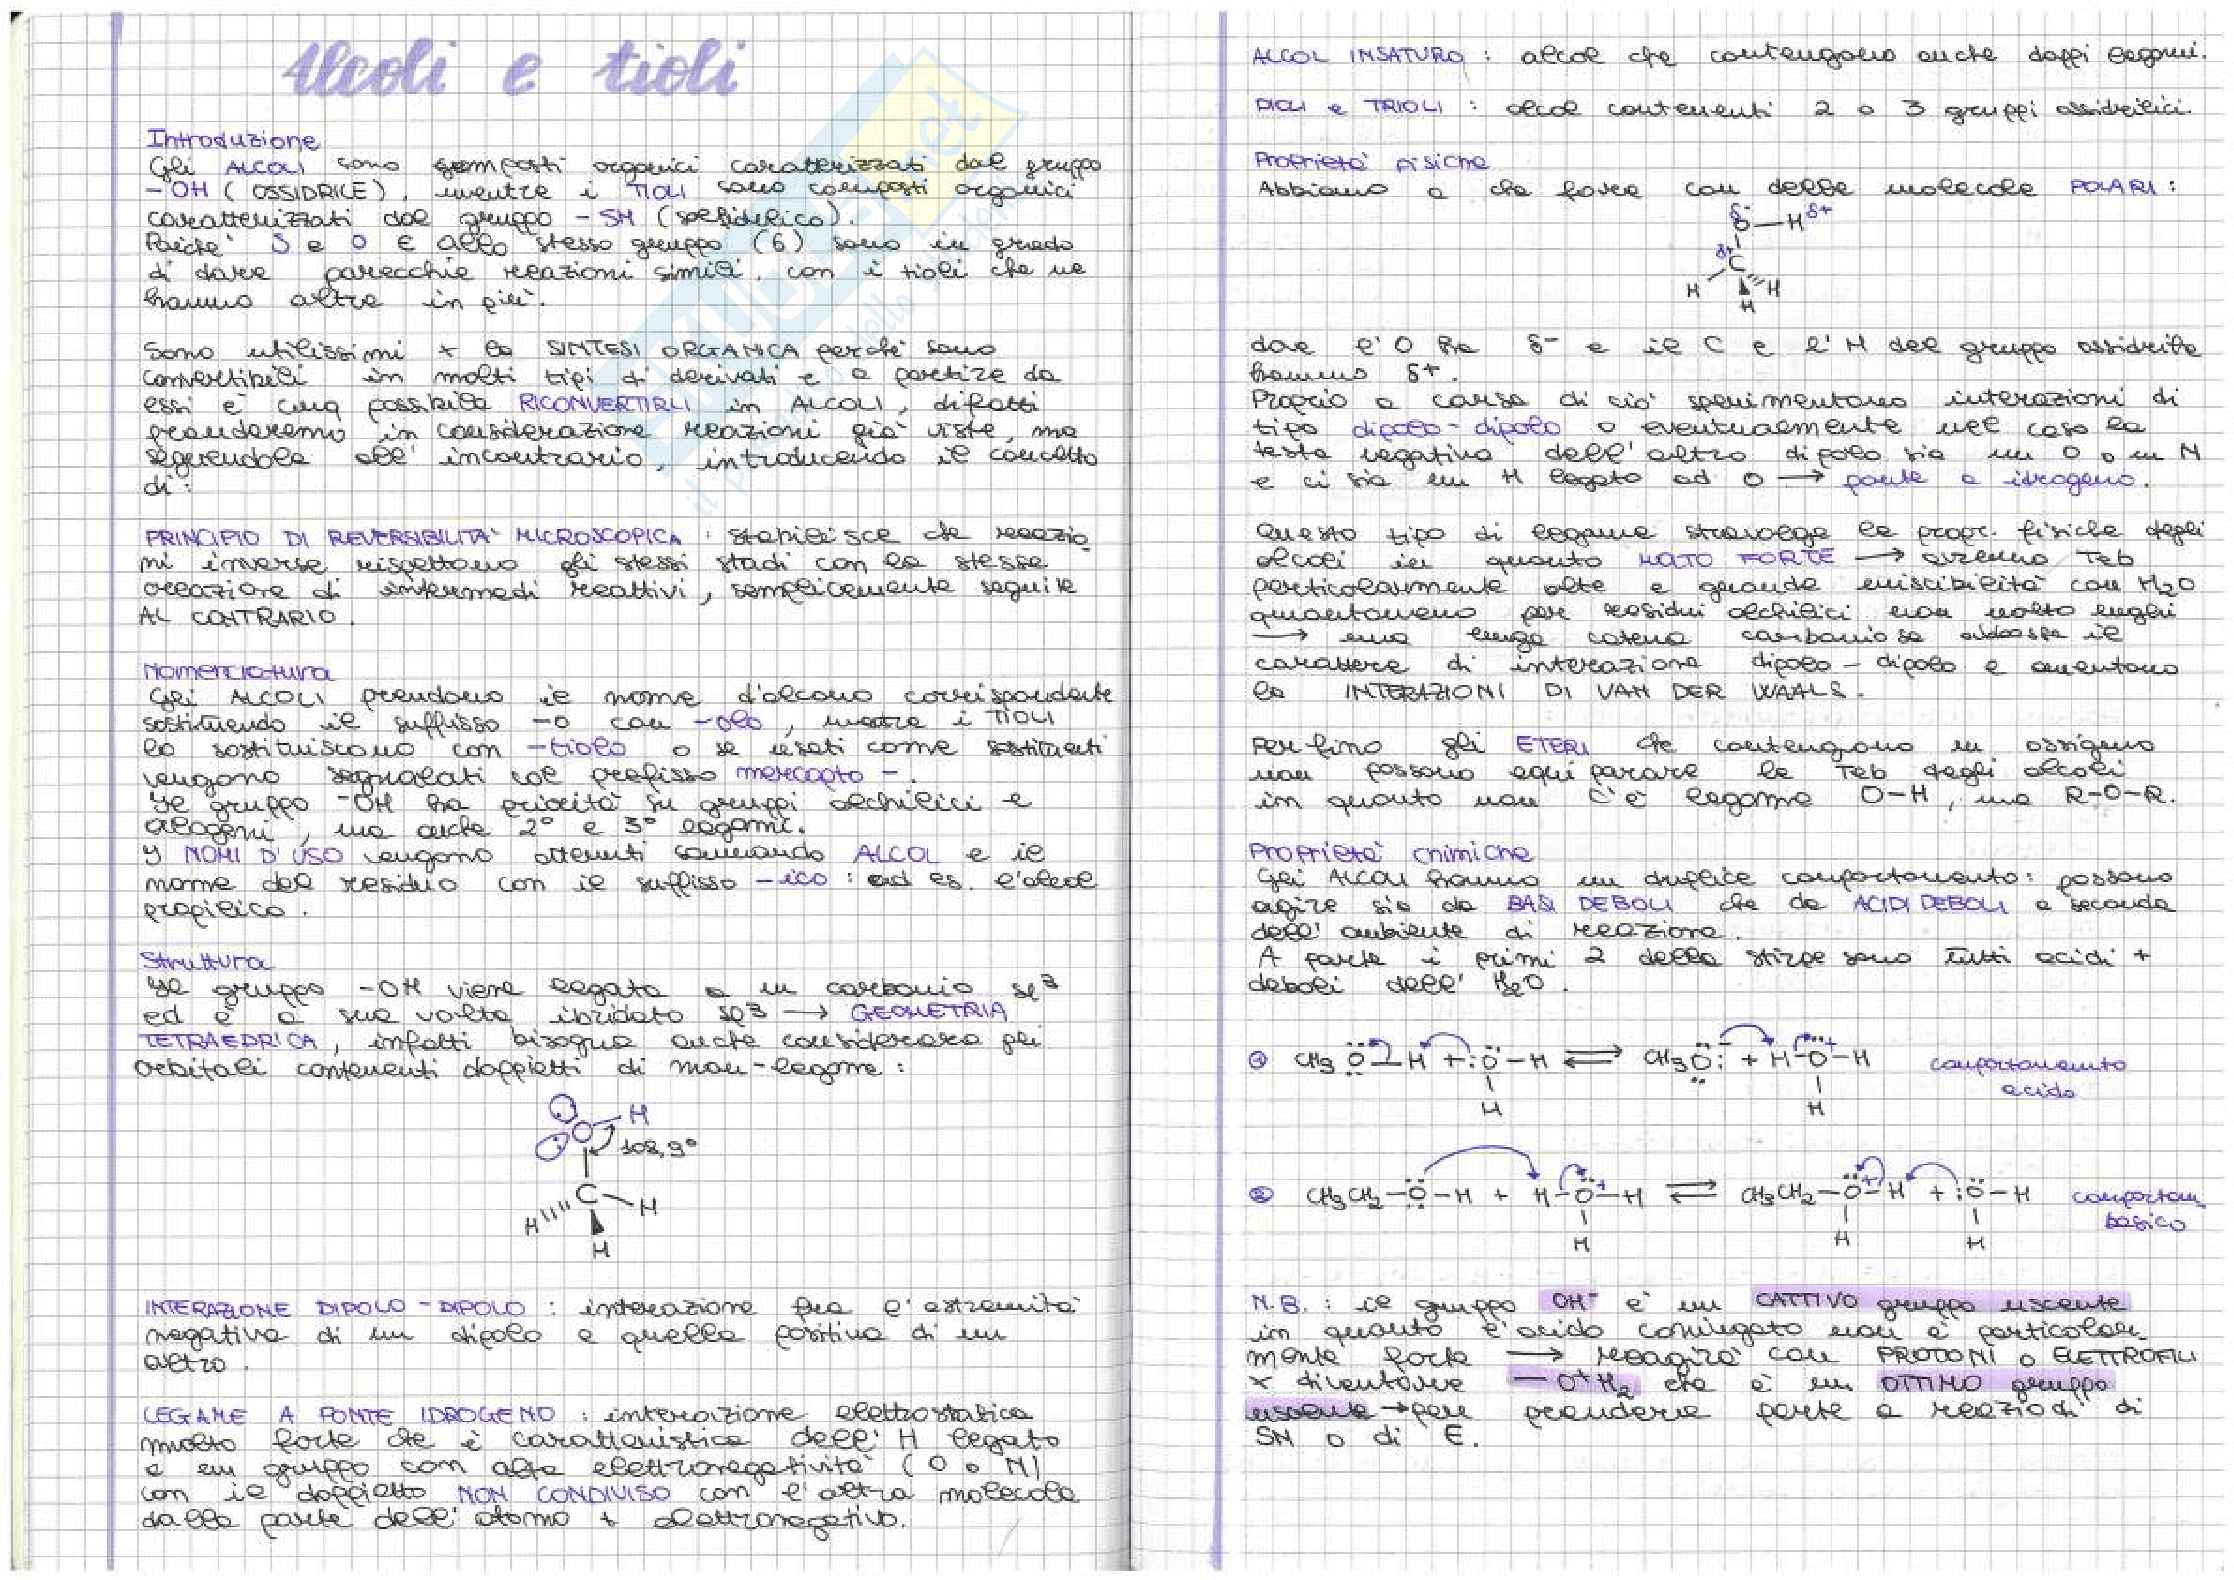 Alcoli e tioli
Introduzione
Gli ALCOLI sono composti organici caratterizzati dal gruppo
-OH (OSSIDRILE), mentre i TIOLI sono composti organici
caratterizzati dal gruppo -SH (solfidrilico).
Poiché S e O E allo stesso gruppo (6) sono in grado
di dare parecchie reazioni simili, con i tioli che ne
hanno altre in più.
Sono utilissimi x la SINTESI ORGANICA perché sono
convertibili in molti tipi di derivati e a partire da
essi è cmq possibile RICONVERTIRLI in ALCOLI, difatti
prenderemo in considerazione reazioni già viste, ma
seguendole all'incontrario, introducendo il concetto
di:
PRINCIPIO DI REVERSIBILITÀ MICROSCOPICA: stabilisce che reazio
ni inverse rispettano gli stessi stadi con la stessa
creazione di intermedi reattivi, semplicemente seguite
AL CONTRARIO.
Nomenclatura
Gli ALCOLI prendono il nome d'alcano corrispondente
sostituendo il suffisso -o con -olo, mentre i TIOLI
lo sostituiscono con -tiolo o se usati come sostituenti
vengono segnalati col prefisso mercapto-.
Il gruppo -OH ha priorità su gruppi alchilici e
alogeni, ma anche 2° e 3° legami.
I NOMI D'USO vengono ottenuti sommando ALCOL e il
nome del residuo con il suffisso -ico: ad es. l'alcol
propilico.
Struttura
Il gruppo -OH viene legato a un carbonio sp³
ed è a sua volta ibridato sp³ → GEOMETRIA
TETRAEDRICA, infatti bisogna anche considerare gli
orbitali contenenti doppietti di non-legame:
O H
108,9°
C
H H
H
INTERAZIONE DIPOLO-DIPOLO: interazione fra l'estremità
negativa di un dipolo e quella positiva di un
altro.
LEGAME A PONTE IDROGENO: interazione elettrostatica
molto forte che è caratteristica dell'H legato
a un gruppo con alta elettronegatività (O o N)
con il doppietto NON CONDIVISO con l'altra molecola
dalla parte dell'atomo + elettronegativo.
ALCOL INSATURO: alcol che contengono anche doppi legami.
DIOLI e TRIOLI: alcol contenenti 2 o 3 gruppi ossidrilici.
Proprietà fisiche
Abbiamo a che fare con delle molecole POLARI:
δ- O-H δ+
δ+ C
H H
H
dove l'O ha δ- e il C e l'H del gruppo ossidrile
hanno δ+.
Proprio a causa di ciò sperimentano interazioni di
tipo dipolo-dipolo o eventualmente nel caso la
testa negativa dell'altro dipolo sia un O o un N
e ci sia un H legato ad O → ponte a idrogeno.
Questo tipo di legame stravolge le propr. fisiche degli
alcoli in quanto MOLTO FORTE → avranno Teb
particolarmente alte e grande miscibilità con H₂O
quantomeno per residui alchilici non molto lunghi
→ una lunga catena carboniosa il
carattere di interazione dipolo-dipolo e aumentano
le INTERAZIONI DI VAN DER WAALS.
Perfino gli ETERI che contengono un ossigeno
non possono equiparare le Teb degli alcoli
in quanto non c'è legame O-H, ma R-O-R.
Proprietà chimiche
Gli ALCOLI hanno un duplice comportamento: possono
agire sia da BASI DEBOLI che da ACIDI DEBOLI a seconda
dell'ambiente di reazione.
A parte i primi 2 della stirpe sono tutti acidi +
deboli dell'H₂O.
① CH₃Ö-H + :Ö-H ⇌ CH₃Ö:⁻ + H-O⁺-H comportamento
H H acido
② CH₃CH₂-Ö-H + H-O⁺-H ⇌ CH₃CH₂-O⁺-H + :Ö-H comportam.
H H H basico
N.B.: il gruppo OH⁻ è un CATTIVO gruppo uscente
in quanto l'acido coniugato non è particolar
mente forte → reagirà con PROTONI o ELETTROFILI
x diventare -O⁺H₂ che è un OTTIMO gruppo
uscente → per prendere parte a reazioni di
SN o di E.